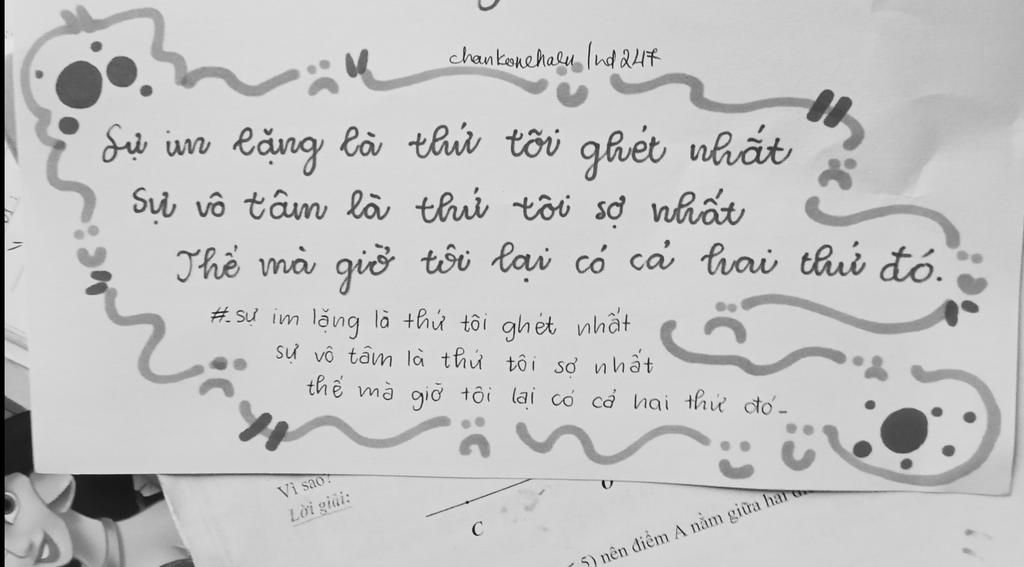 chankonehalu /hd247
Sự im lặng là thứ tôi ghét nhất
Sự vô tâm là thứ tôi sợ nhất
Thế mà giờ tôi lại có cả hai thứ đó.
#_sự im lặng là thứ tôi ghét nhất
sự vô tâm là thứ tôi sợ nhất
thế mà giờ tôi lại có cả hai thứ đó_
Vì sao?
Lời giải:
C
5) nên điểm A nằm giữa hai